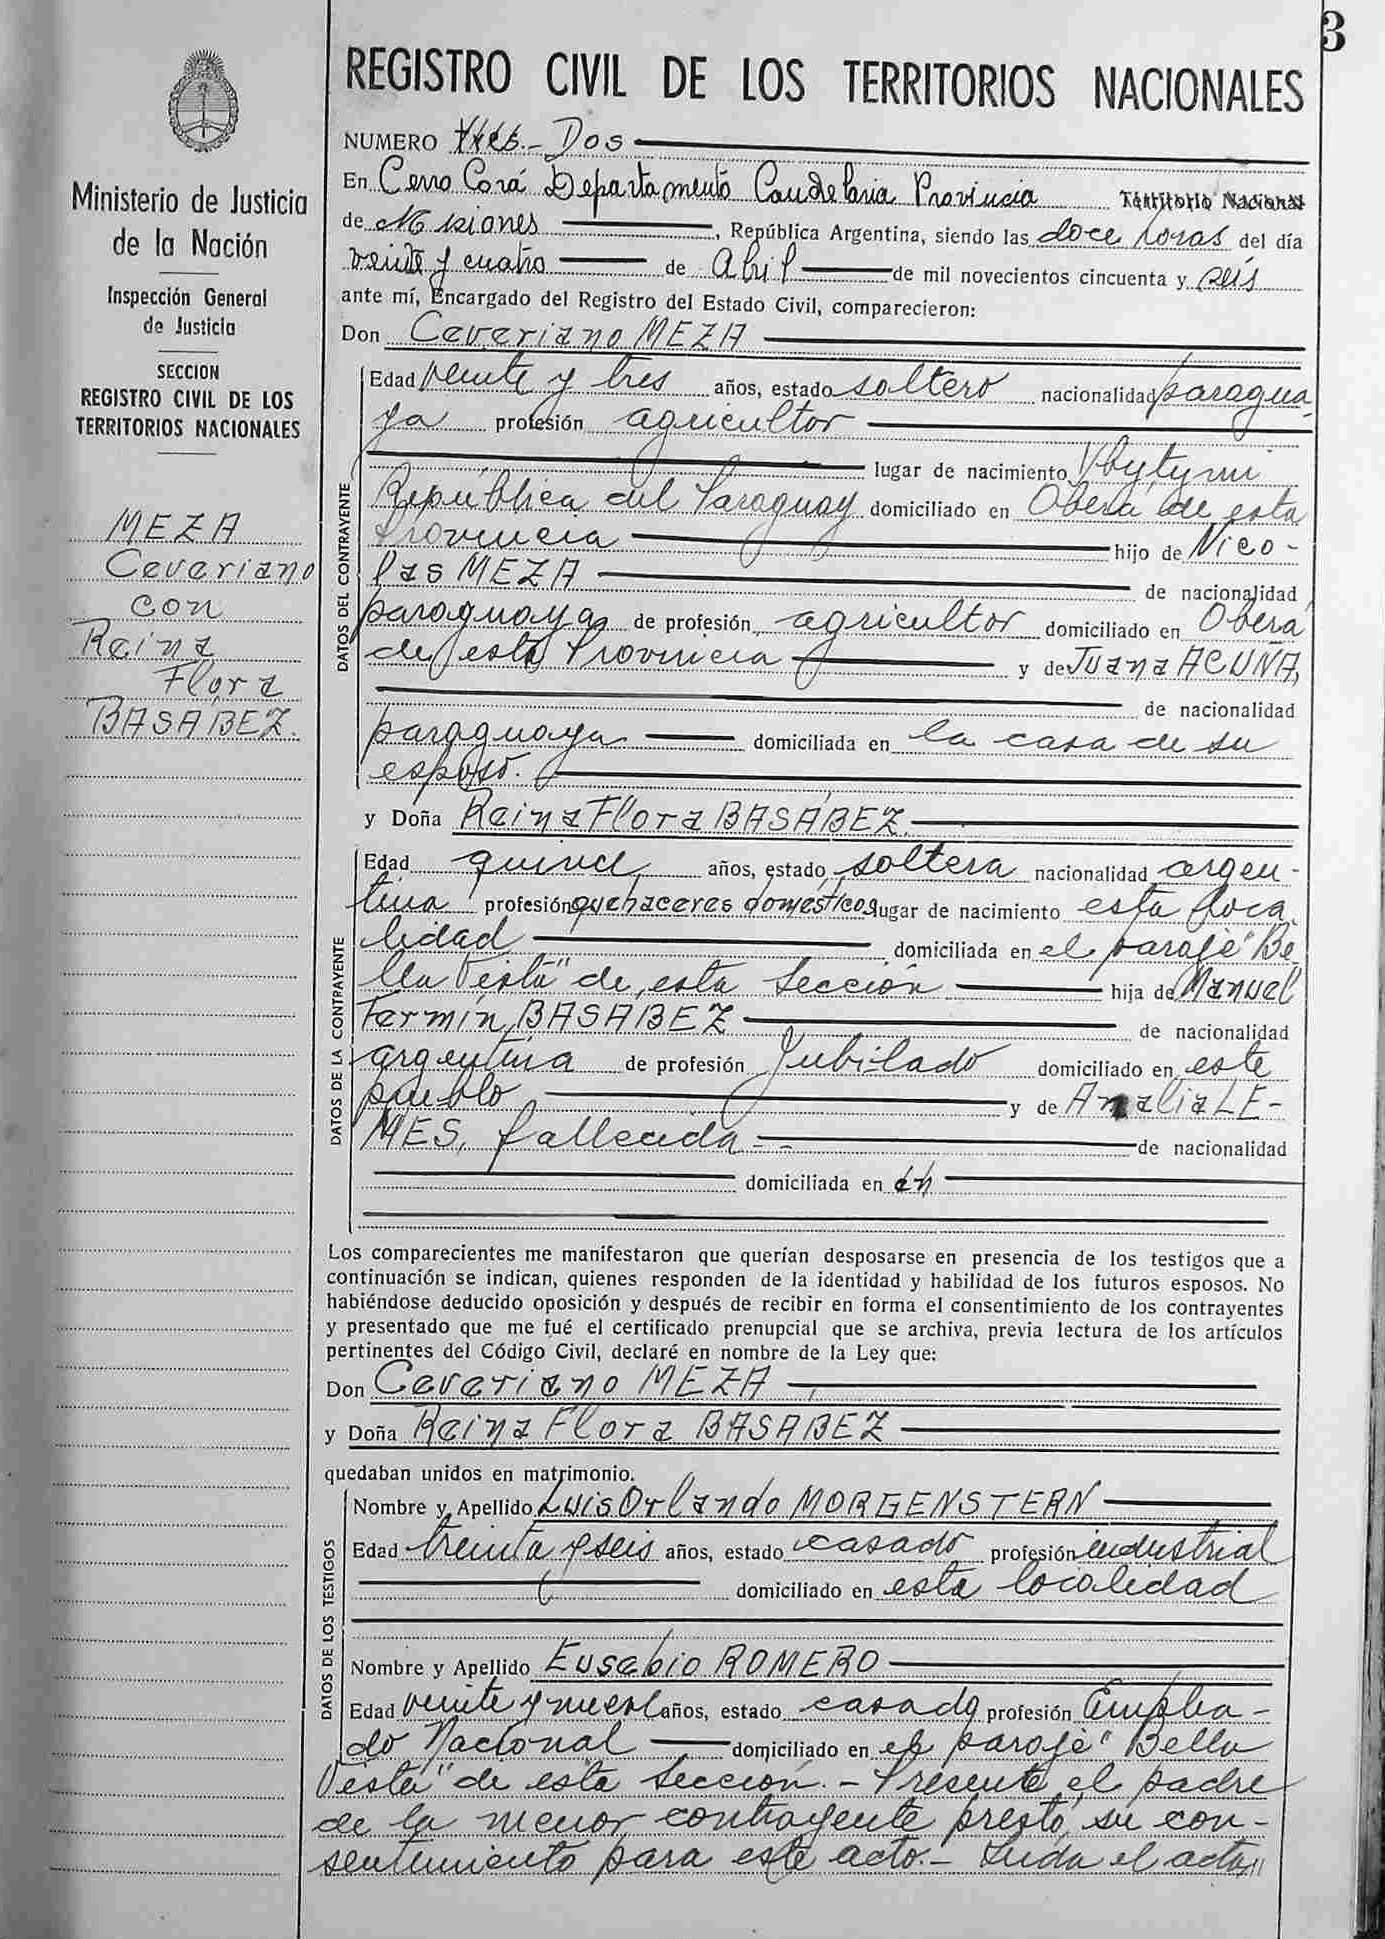 3
REGISTRO CIVIL DE LOS TERRITORIOS NACIONALES
Ministerio de Justicia
de la Nación
Inspección General
de Justicia
SECCION
REGISTRO CIVIL DE LOS
TERRITORIOS NACIONALES
MEZA
Ceveriano
con
Reina
Flora
BASABEZ.
NUMERO Tres.- Dos
En Cerro Corá Departamento Candelaria Provincia Territorio Nacional
de Misiones, República Argentina, siendo las doce horas del día
veinte y cuatro de Abril de mil novecientos cincuenta y seis
ante mí, Encargado del Registro del Estado Civil, comparecieron:
Don Ceveriano MEZA
DATOS DEL CONTRAYENTE
Edad veinte y tres años, estado soltero nacionalidad paragua
ya profesión agricultor
lugar de nacimiento Ybytymi
República del Paraguay domiciliado en Oberá de esta
Provincia hijo de Nico-
las MEZA de nacionalidad
paraguaya de profesión agricultor domiciliado en Oberá
de esta Provincia y de Juana ACUÑA,
de nacionalidad
paraguaya domiciliada en la casa de su
esposo.
y Doña Reina Flora BASABEZ
DATOS DE LA CONTRAYENTE
Edad quince años, estado soltera nacionalidad argen-
tina profesión quehaceres domésticos lugar de nacimiento esta loca
lidad domiciliada en el paraje "Be-
lla Vista" de esta Sección hija de Manuel
Fermín BASABEZ de nacionalidad
argentina de profesión Jubilado domiciliado en este
pueblo y de Analia LE-
MES, fallecida.- de nacionalidad
domiciliada en en
Los comparecientes me manifestaron que querían desposarse en presencia de los testigos que a
continuación se indican, quienes responden de la identidad y habilidad de los futuros esposos. No
habiéndose deducido oposición y después de recibir en forma el consentimiento de los contrayentes
y presentado que me fué el certificado prenupcial que se archiva, previa lectura de los artículos
pertinentes del Código Civil, declaré en nombre de la Ley que:
Don Ceveriano MEZA
y Doña Reina Flora BASABEZ
quedaban unidos en matrimonio.
DATOS DE LOS TESTIGOS
Nombre y Apellido Luis Orlando MORGENSTERN
Edad treinta y seis años, estado casado profesión industrial
domiciliado en esta localidad
Nombre y Apellido Eusebio ROMERO
Edad veinte y nueve años, estado casado profesión Emplea-
do Nacional domiciliado en el paraje "Bella
Vista" de esta Sección.- Presente el padre
de la menor contrayente prestó su con-
sentimiento para este acto.- Leida el acta,,